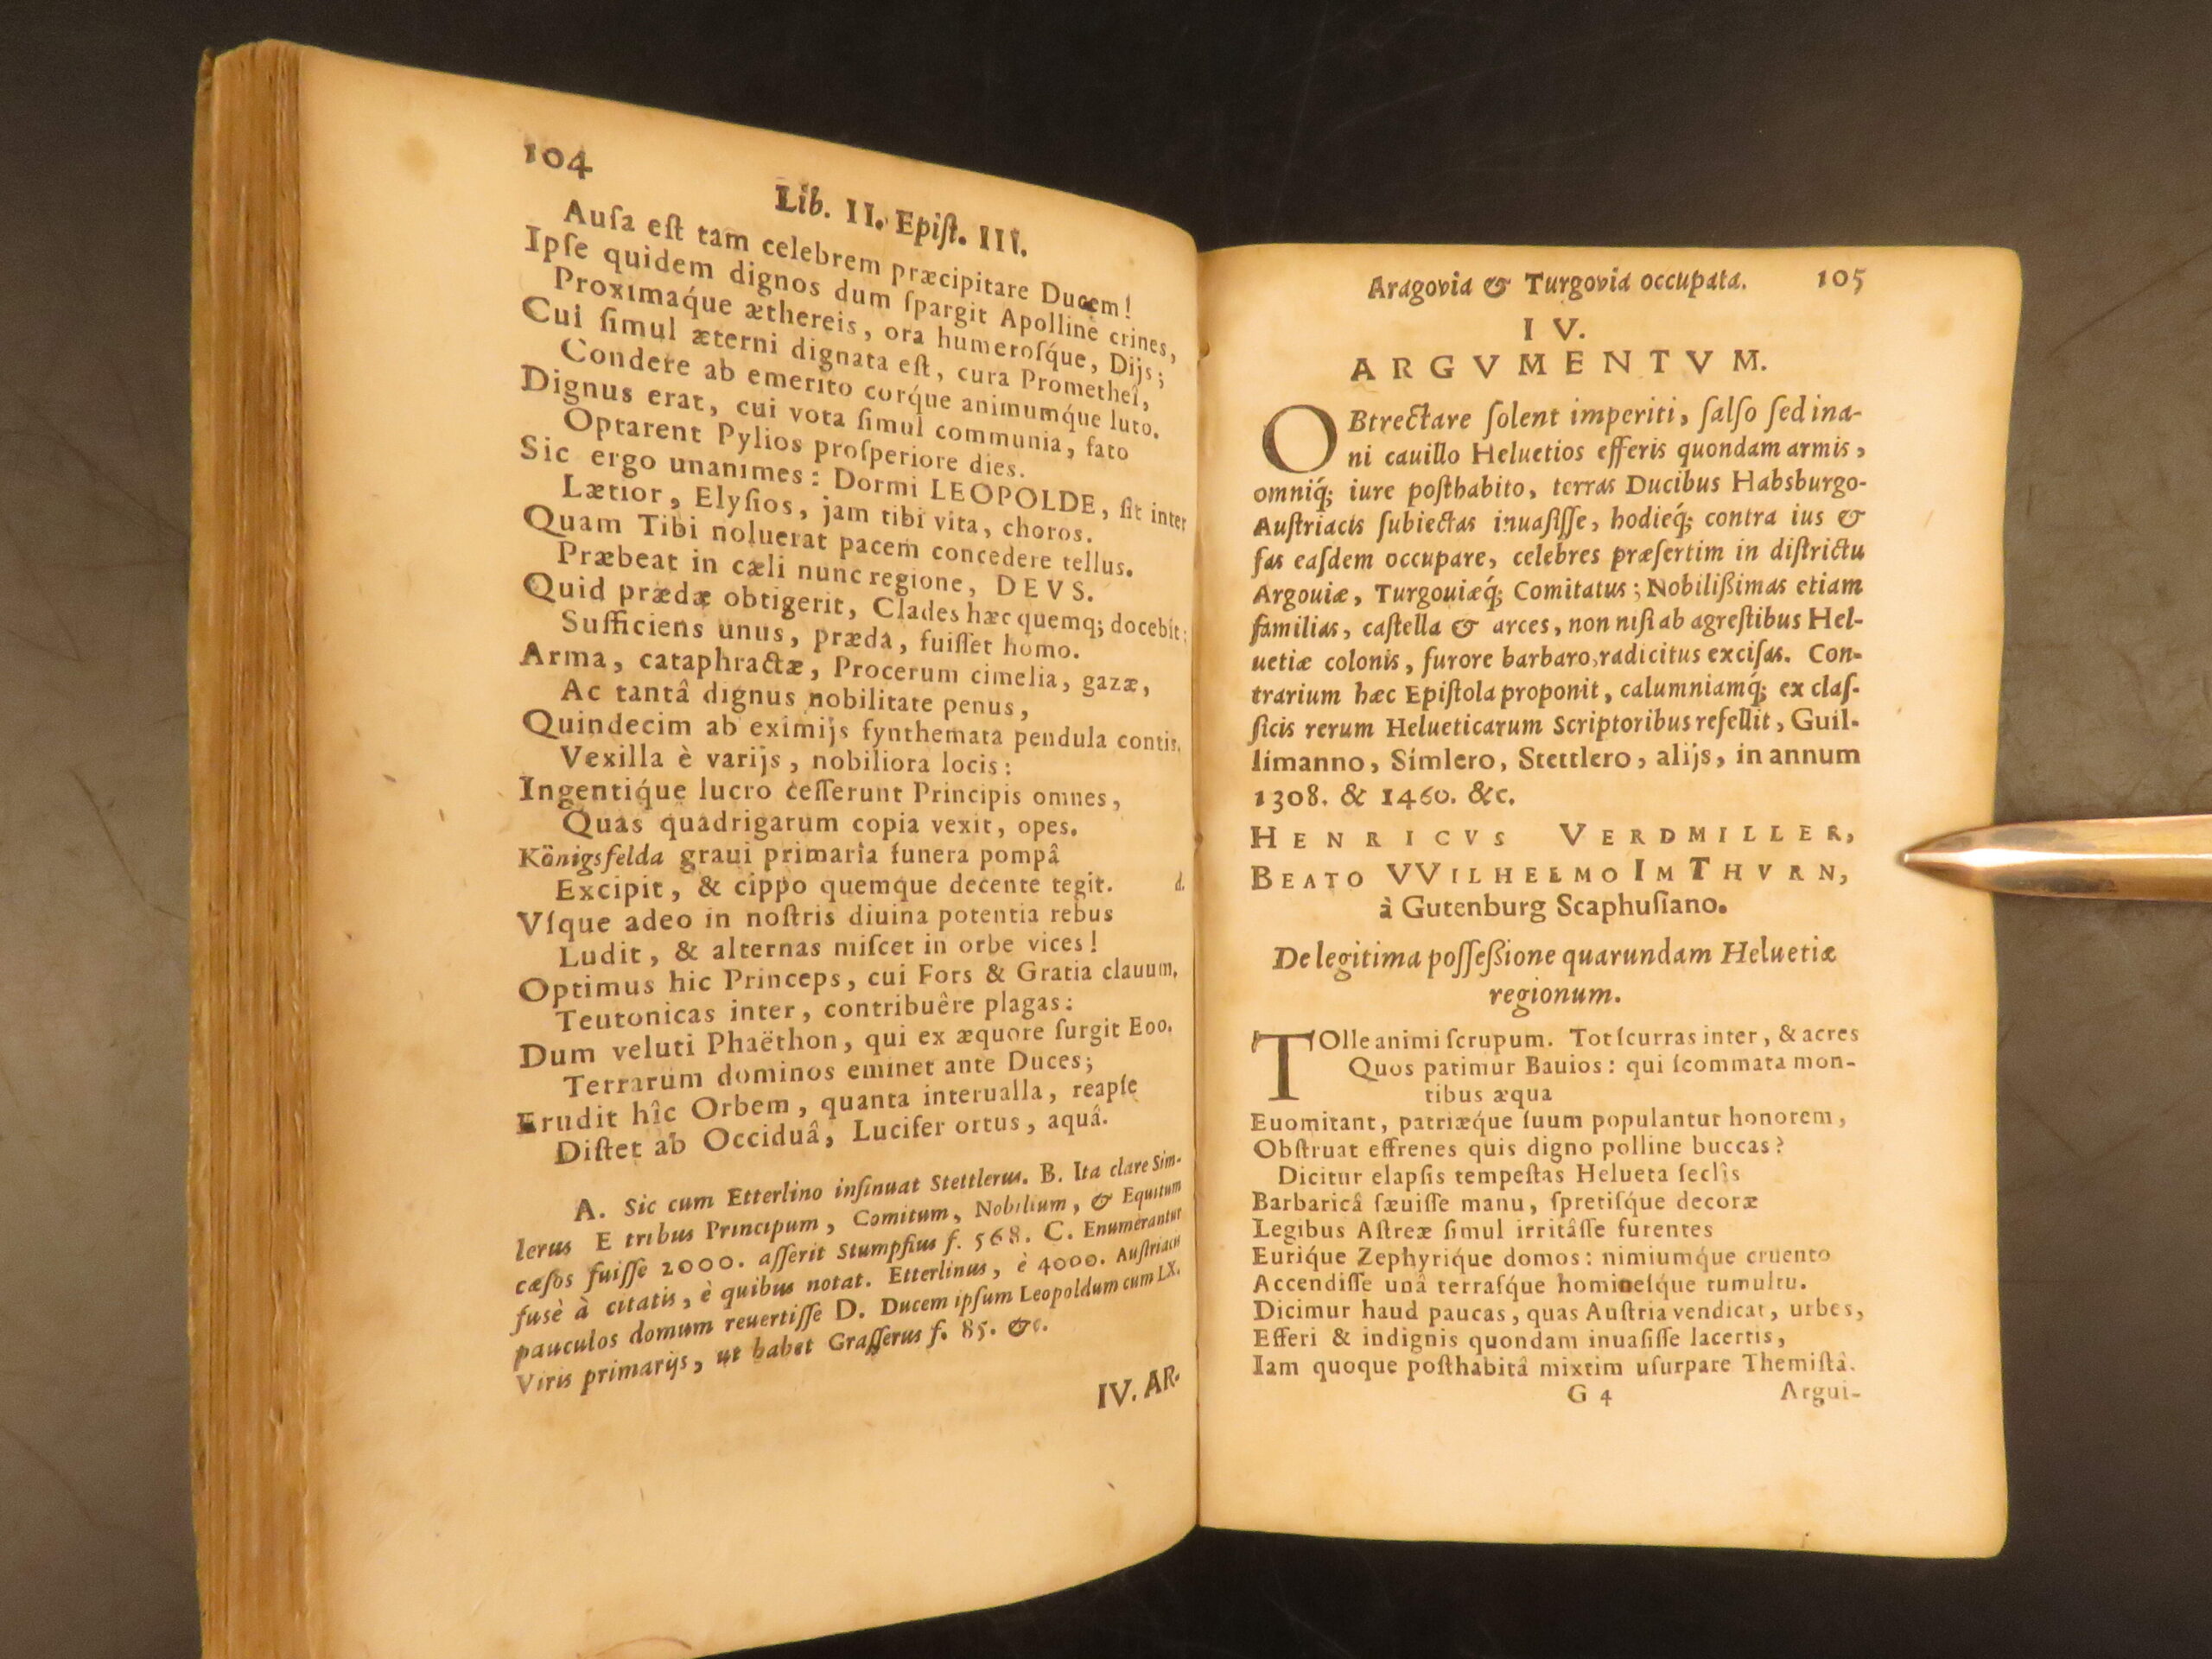 104
Lib. II. Epiſt. III.
Auſa eſt tam celebrem præcipitare Ducem!
Ipſe quidem dignos dum ſpargit Apolline crines,
Proximaq́ue æthereis, ora humeroſq́ue, Dijs;
Cui ſimul æterni dignata eſt, cura Promethei,
Condere ab emerito corq́ue animumq́ue luto.
Dignus erat, cui vota ſimul communia, fato
Optarent Pylios proſperiore dies.
Sic ergo unanimes: Dormi LEOPOLDE, ſit inter
Lætior, Elyſios, jam tibi vita, choros.
Quam Tibi noluerat pacem concedere tellus.
Præbeat in cæli nunc regione, DEVS.
Quid prædæ obtigerit, Clades hæc quemq; docebit:
Sufficiens unus, præda, fuiſſet homo.
Arma, cataphractæ, Procerum cimelia, gazæ,
Ac tantâ dignus nobilitate penus,
Quindecim ab eximijs ſynthemata pendula contis,
Vexilla è varijs, nobiliora locis:
Ingentiq́ue lucro ceſſerunt Principis omnes,
Quas quadrigarum copia vexit, opes.
Königsfelda graui primaria funera pompâ
Excipit, & cippo quemque decente tegit. d.
Vſque adeo in noſtris diuina potentia rebus
Ludit, & alternas miſcet in orbe vices!
Optimus hic Princeps, cui Fors & Gratia clauum,
Teutonicas inter, contribuêre plagas:
Dum veluti Phaëthon, qui ex æquore ſurgit Eoo,
Terrarum dominos eminet ante Duces;
Erudit hîc Orbem, quanta interualla, reapſe
Diſtet ab Occiduâ, Lucifer ortus, aquâ.
A. Sic cum Etterlino inſinuat Stettlerus. B. Ita clare Sim-
lerus E tribus Principum, Comitum, Nobilium, & Equitum
cæſos fuiſſe 2000. aſſerit Stumpfius f. 568. C. Enumerantur
fusè à citatis, è quibus notat. Etterlinus, è 4000. Auſtriacis
pauculos domum reuertiſſe D. Ducem ipſum Leopoldum cum LX.
Viris primarijs, ut habet Graſſerus f. 85. &c.
IV. AR-
Aragovia & Turgovia occupata. 105
IV.
ARGVMENTVM.
OBtrectare ſolent imperiti, ſalſo ſed ina-
ni cauillo Heluetios efferis quondam armis,
omniq́; iure poſthabito, terras Ducibus Habsburgo-
Auſtriacis ſubiectas inuaſiſſe, hodieq́; contra ius &
fas eaſdem occupare, celebres præſertim in diſtrictu
Argouiæ, Turgouiæq́; Comitatus; Nobilißimas etiam
familias, caſtella & arces, non niſi ab agreſtibus Hel-
uetiæ colonis, furore barbaro, radicitus exciſas. Con-
trarium hæc Epiſtola proponit, calumniamq́; ex claſ-
ſicis rerum Helueticarum Scriptoribus refellit, Guil-
limanno, Simlero, Stettlero, alijs, in annum
1308. & 1460. &c.
HENRICVS VERDMILLER,
BEATO VVILHELMO IM THVRN,
à Gutenburg Scaphuſiano.
De legitima poſſeßione quarundam Heluetiæ
regionum.
TOlle animi ſcrupum. Tot ſcurras inter, & acres
Quos patimur Bauios: qui ſcommata mon-
tibus æqua
Euomitant, patriæq́ue ſuum populantur honorem,
Obſtruat effrenes quis digno polline buccas?
Dicitur elapſis tempeſtas Helueta ſeclîs
Barbaricâ ſæuiſſe manu, ſpretiſq́ue decoræ
Legibus Aſtreæ ſimul irritâſſe furentes
Euriq́ue Zephyriq́ue domos: nimiumq́ue cruento
Accendiſſe unâ terraſq́ue homineſq́ue tumultu.
Dicimur haud paucas, quas Auſtria vendicat, urbes,
Efferi & indignis quondam inuaſiſſe lacertis,
Iam quoque poſthabitâ mixtim uſurpare Themiſtâ.
G 4 Argui-